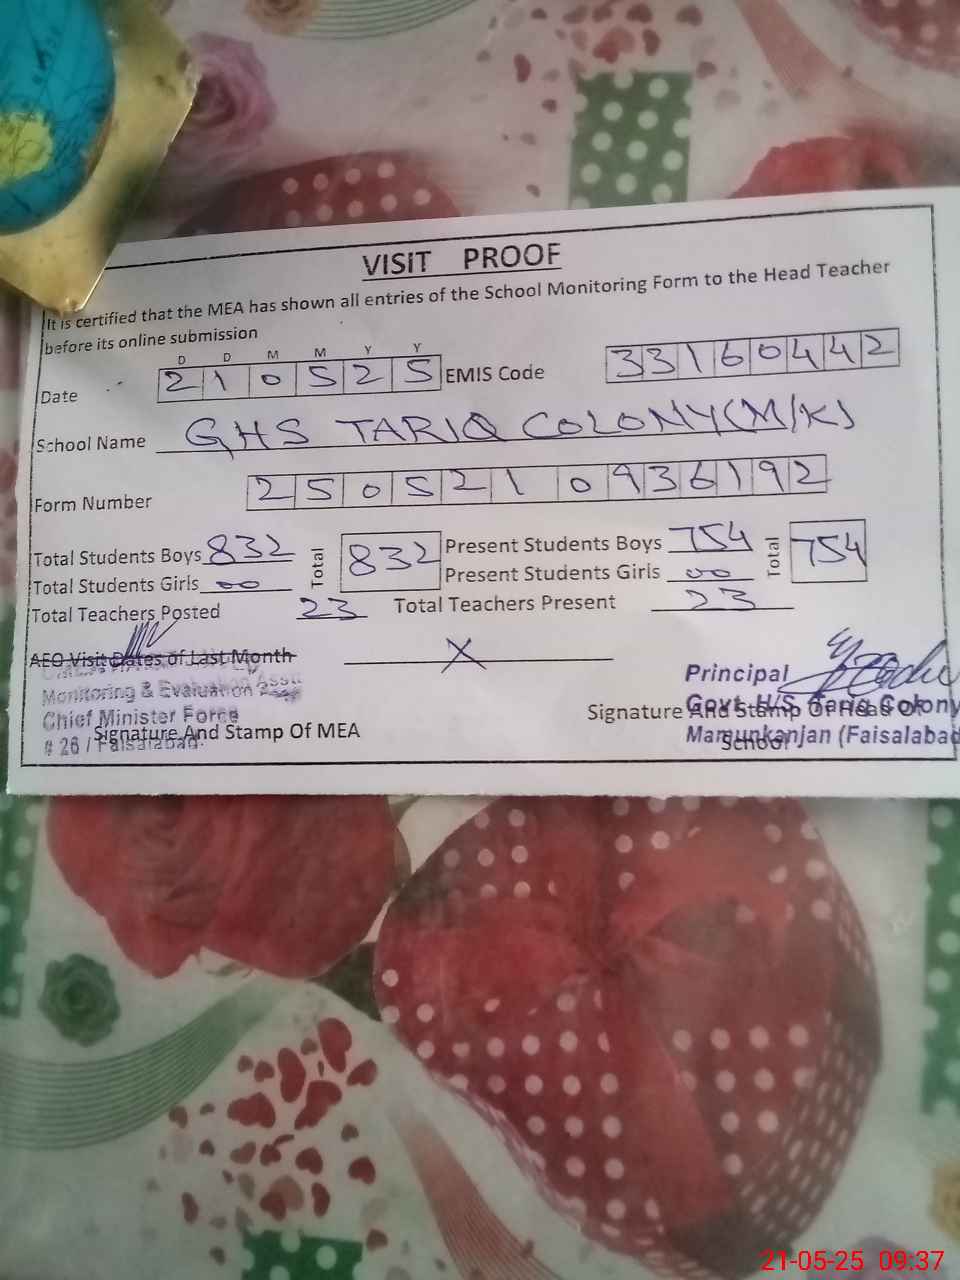 VISIT PROOF
It is certified that the MEA has shown all entries of the School Monitoring Form to the Head Teacher
before its online submission
D D M M Y Y
Date 210525 EMIS Code 33160442
School Name GHS TARIQ COLONY(M/K)
Form Number 2505210936192
Total Students Boys 832 Total 832 Present Students Boys 754 Total 754
Total Students Girls 00 Present Students Girls 00
Total Teachers Posted 23 Total Teachers Present 23
AEO Visit Dates of Last Month X
Monitoring & Evaluation Asstt
Chief Minister Force
# 26 / Faisalabad.
Signature And Stamp Of MEA
Principal
Govt. H/S Tariq Colony
Mamunkanjan (Faisalabad
Signature And Stamp Of Head Of
School
21-05-25 09:37